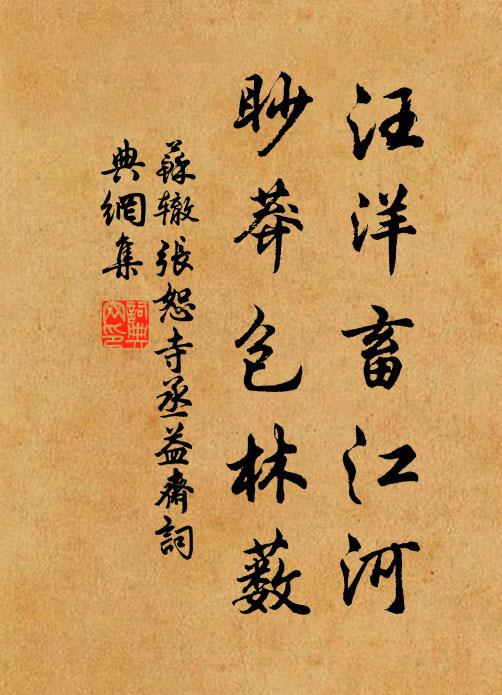 汪洋畜江河
眇莽包林薮
蘇辙張恕寺丞益齋詞
典網集
詞典网印